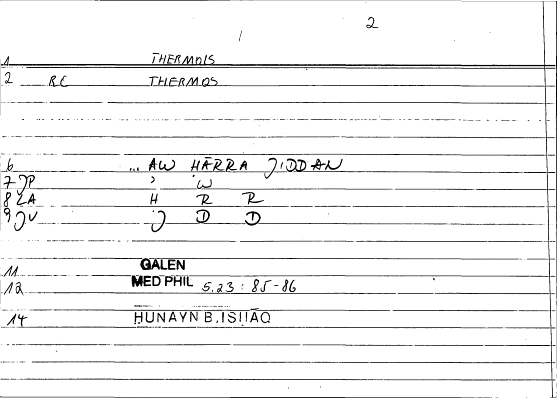 2
1 THERMOIS
2 RC THERMOS
6 ... AW ḤĀRRA JIDDAN
7 JP ' W
8 ZA H R R
9 JV J D D
11 GALEN
12 MED PHIL 5.23 : 85-86
14 ḤUNAYN B. ISḤĀQ